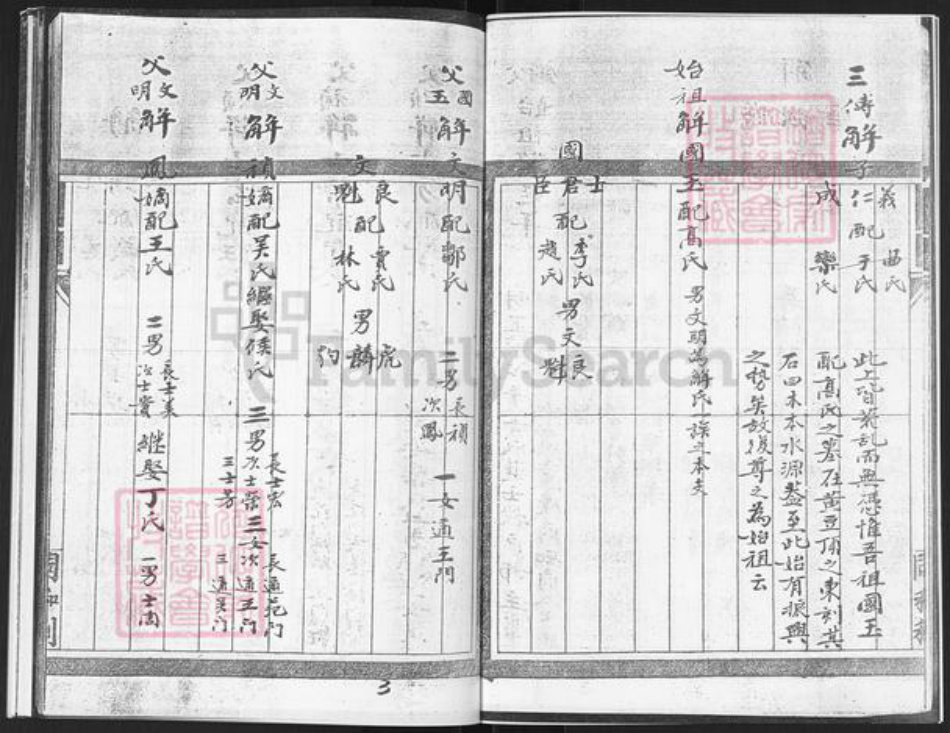 三傅解子仁配于氏
義 曲氏
成 欒氏
此上皆荒乱而無憑惟吾祖國玉
配高氏之墓在黄豆頂之東刻其
石曰木本水源盖至此始有派興
之势矣故後尊之為始祖云
始祖解國玉配高氏 男文明為解氏一族之本支
國士 君 臣
配李氏 趙氏
男文良 魁
父國玉解文明配鄒氏 二男長禎次鳳 一女適王門
文良 魁
配賈氏 林氏
男虎 麟 豹
父文明解禎嫡配吴氏繼娶侯氏 三男長士宏次士榮三士芳 三女長適苑門次適王門三適吴門
父文明解鳳嫡配王氏 二男長士美次士貴 継娶丁氏 一男士周
3
FamilySearch